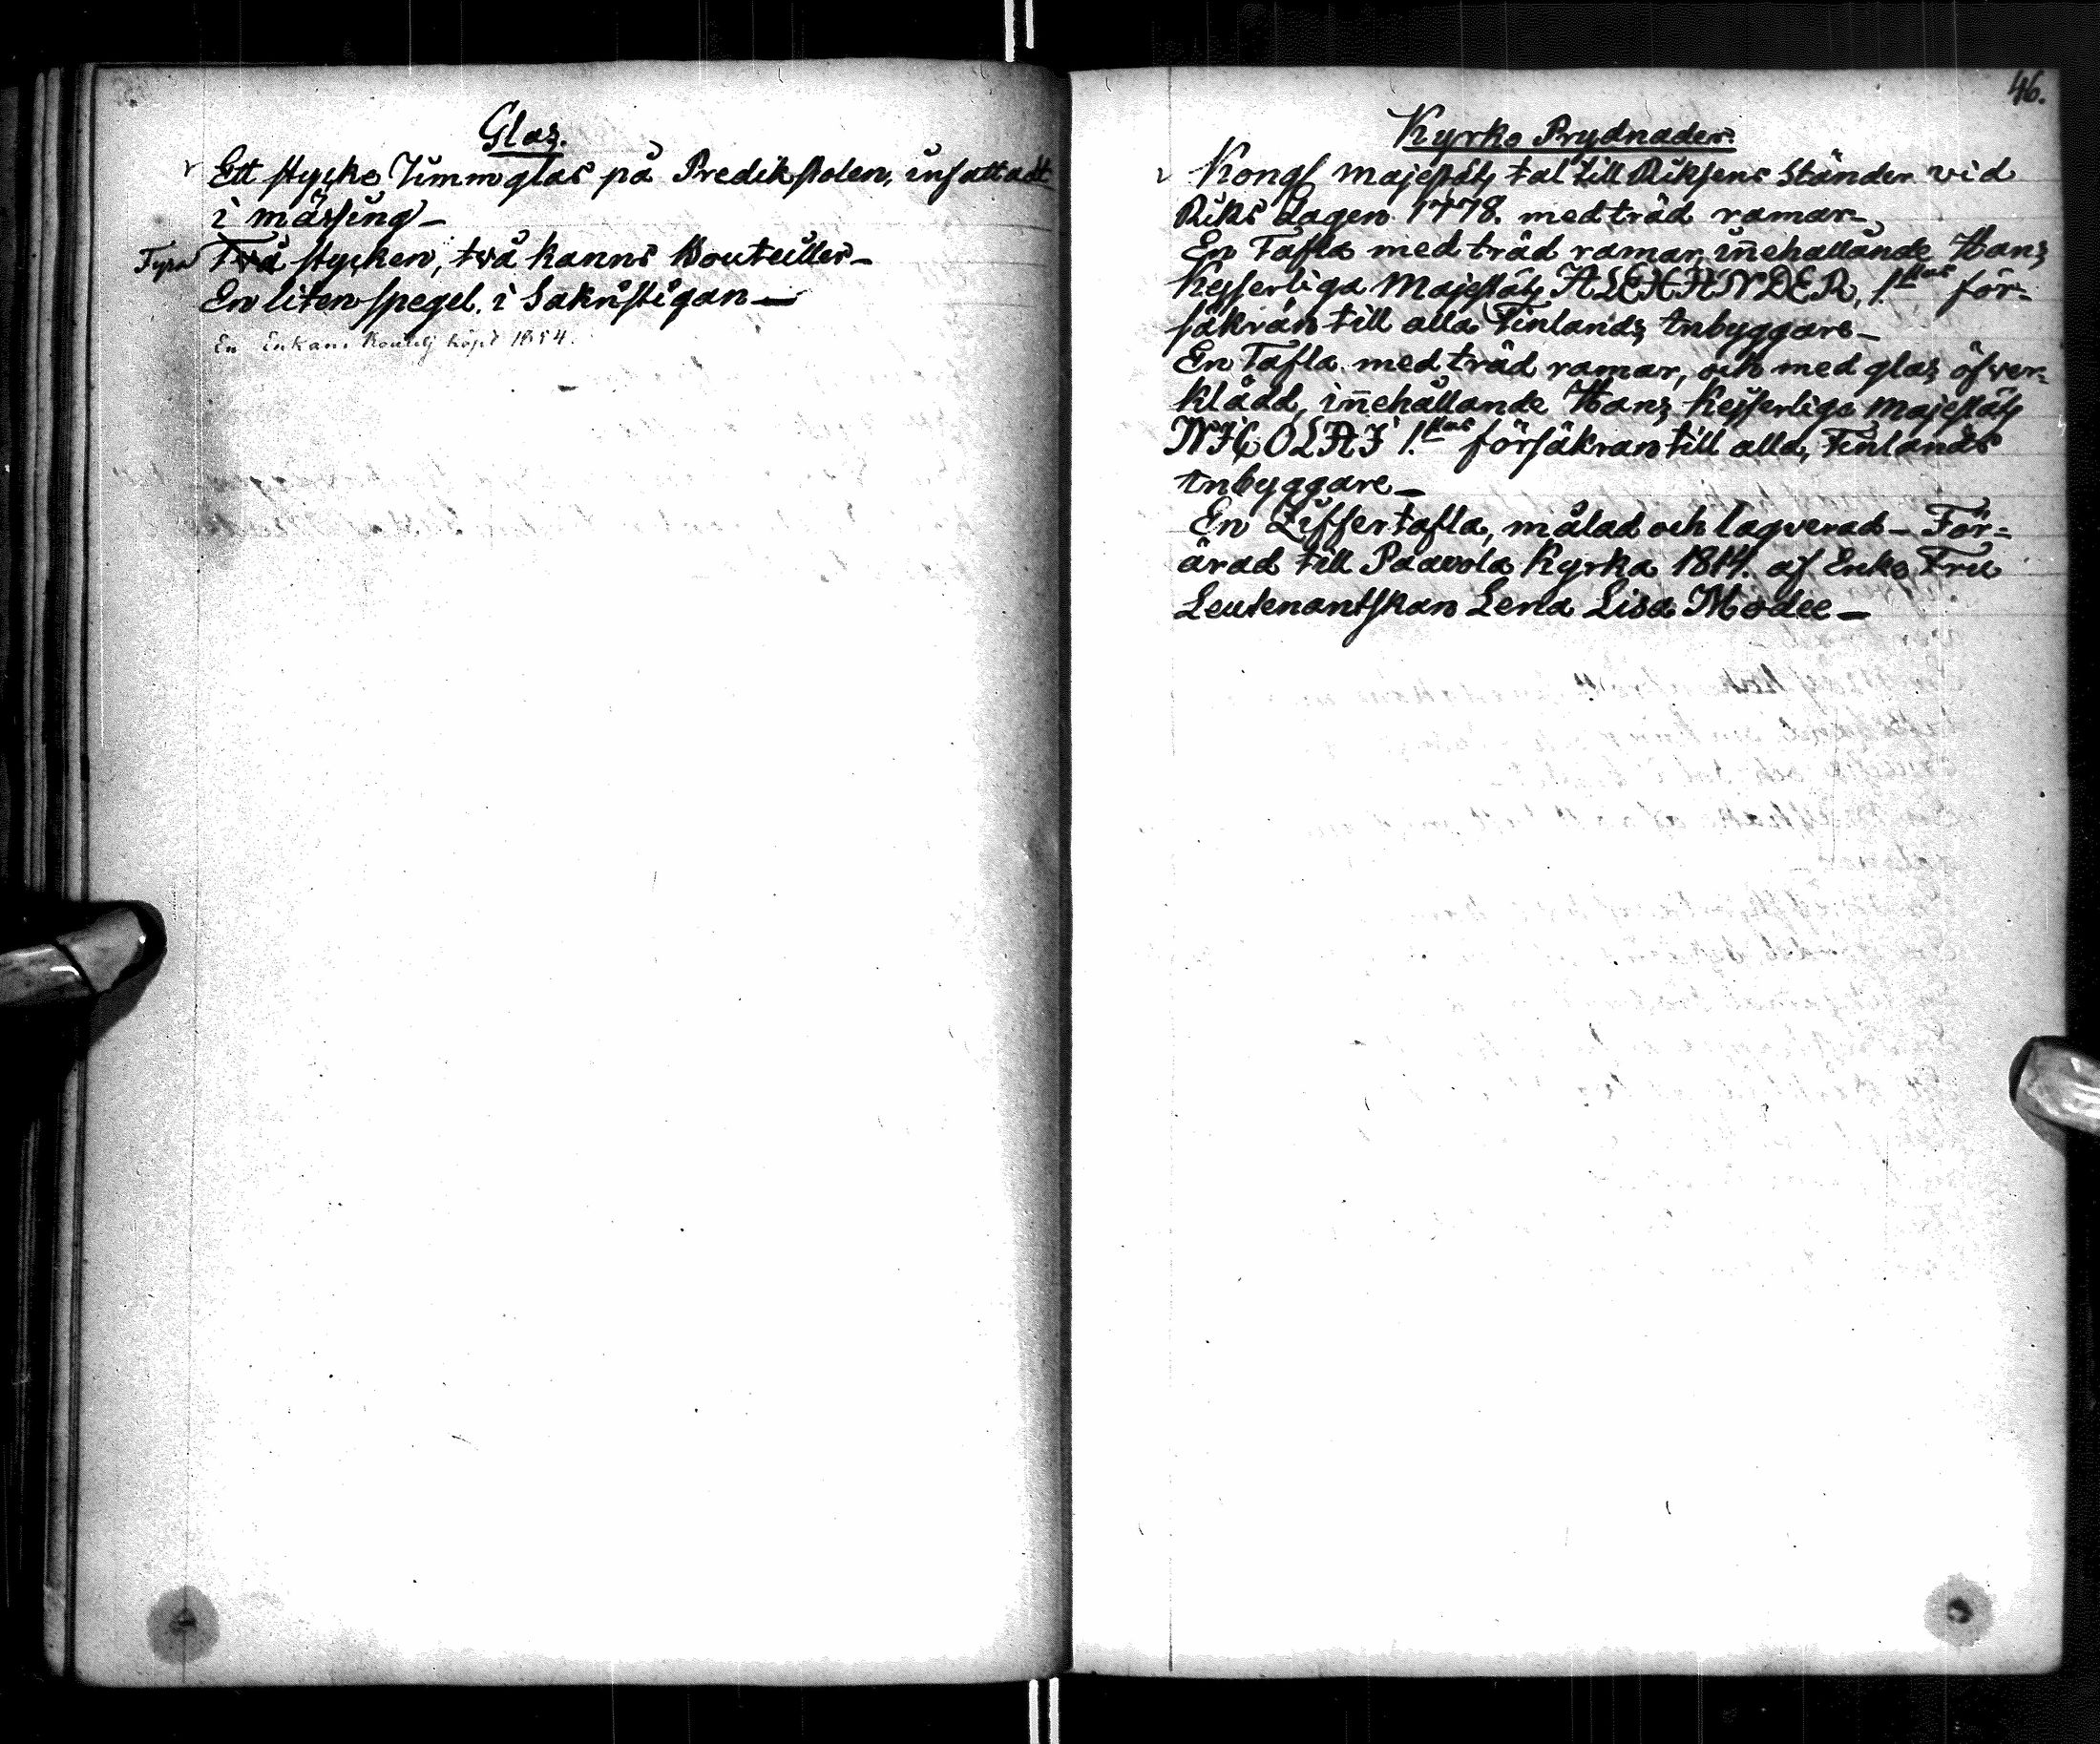 Glas.
Ett stycke Timmglas på Predikstolen, infattadt
i mässing_
Fyra Två stycken, två kanns Bouteiller_
En liten spegel i Sakristigan_
En Enkans Boutelj köpt 1854.
46.
Kyrko Prydnader.
Kongl Majestäts tal till Riksens Ständer vid
Riks dagen 1778. med träd ramar_
En Tafla med träd ramar, iñehållande Hans
Kejserliga Majestäts ALEXANDER, 1.stas för=
säkran till alla Finlands Inbyggare_
En Tafla med träd ramar, och med glas öfver=
klädd, iñehållande Hans Kejserliga Majestäts
NICOLAI 1.stas försäkran till alla, Finlands
Inbyggare_
En Ziffertafla, målad och lagverad_ För=
ärad till Paavola Kyrka 1814. af Enke Fru
Leutenantskan Lena Lisa Modee_